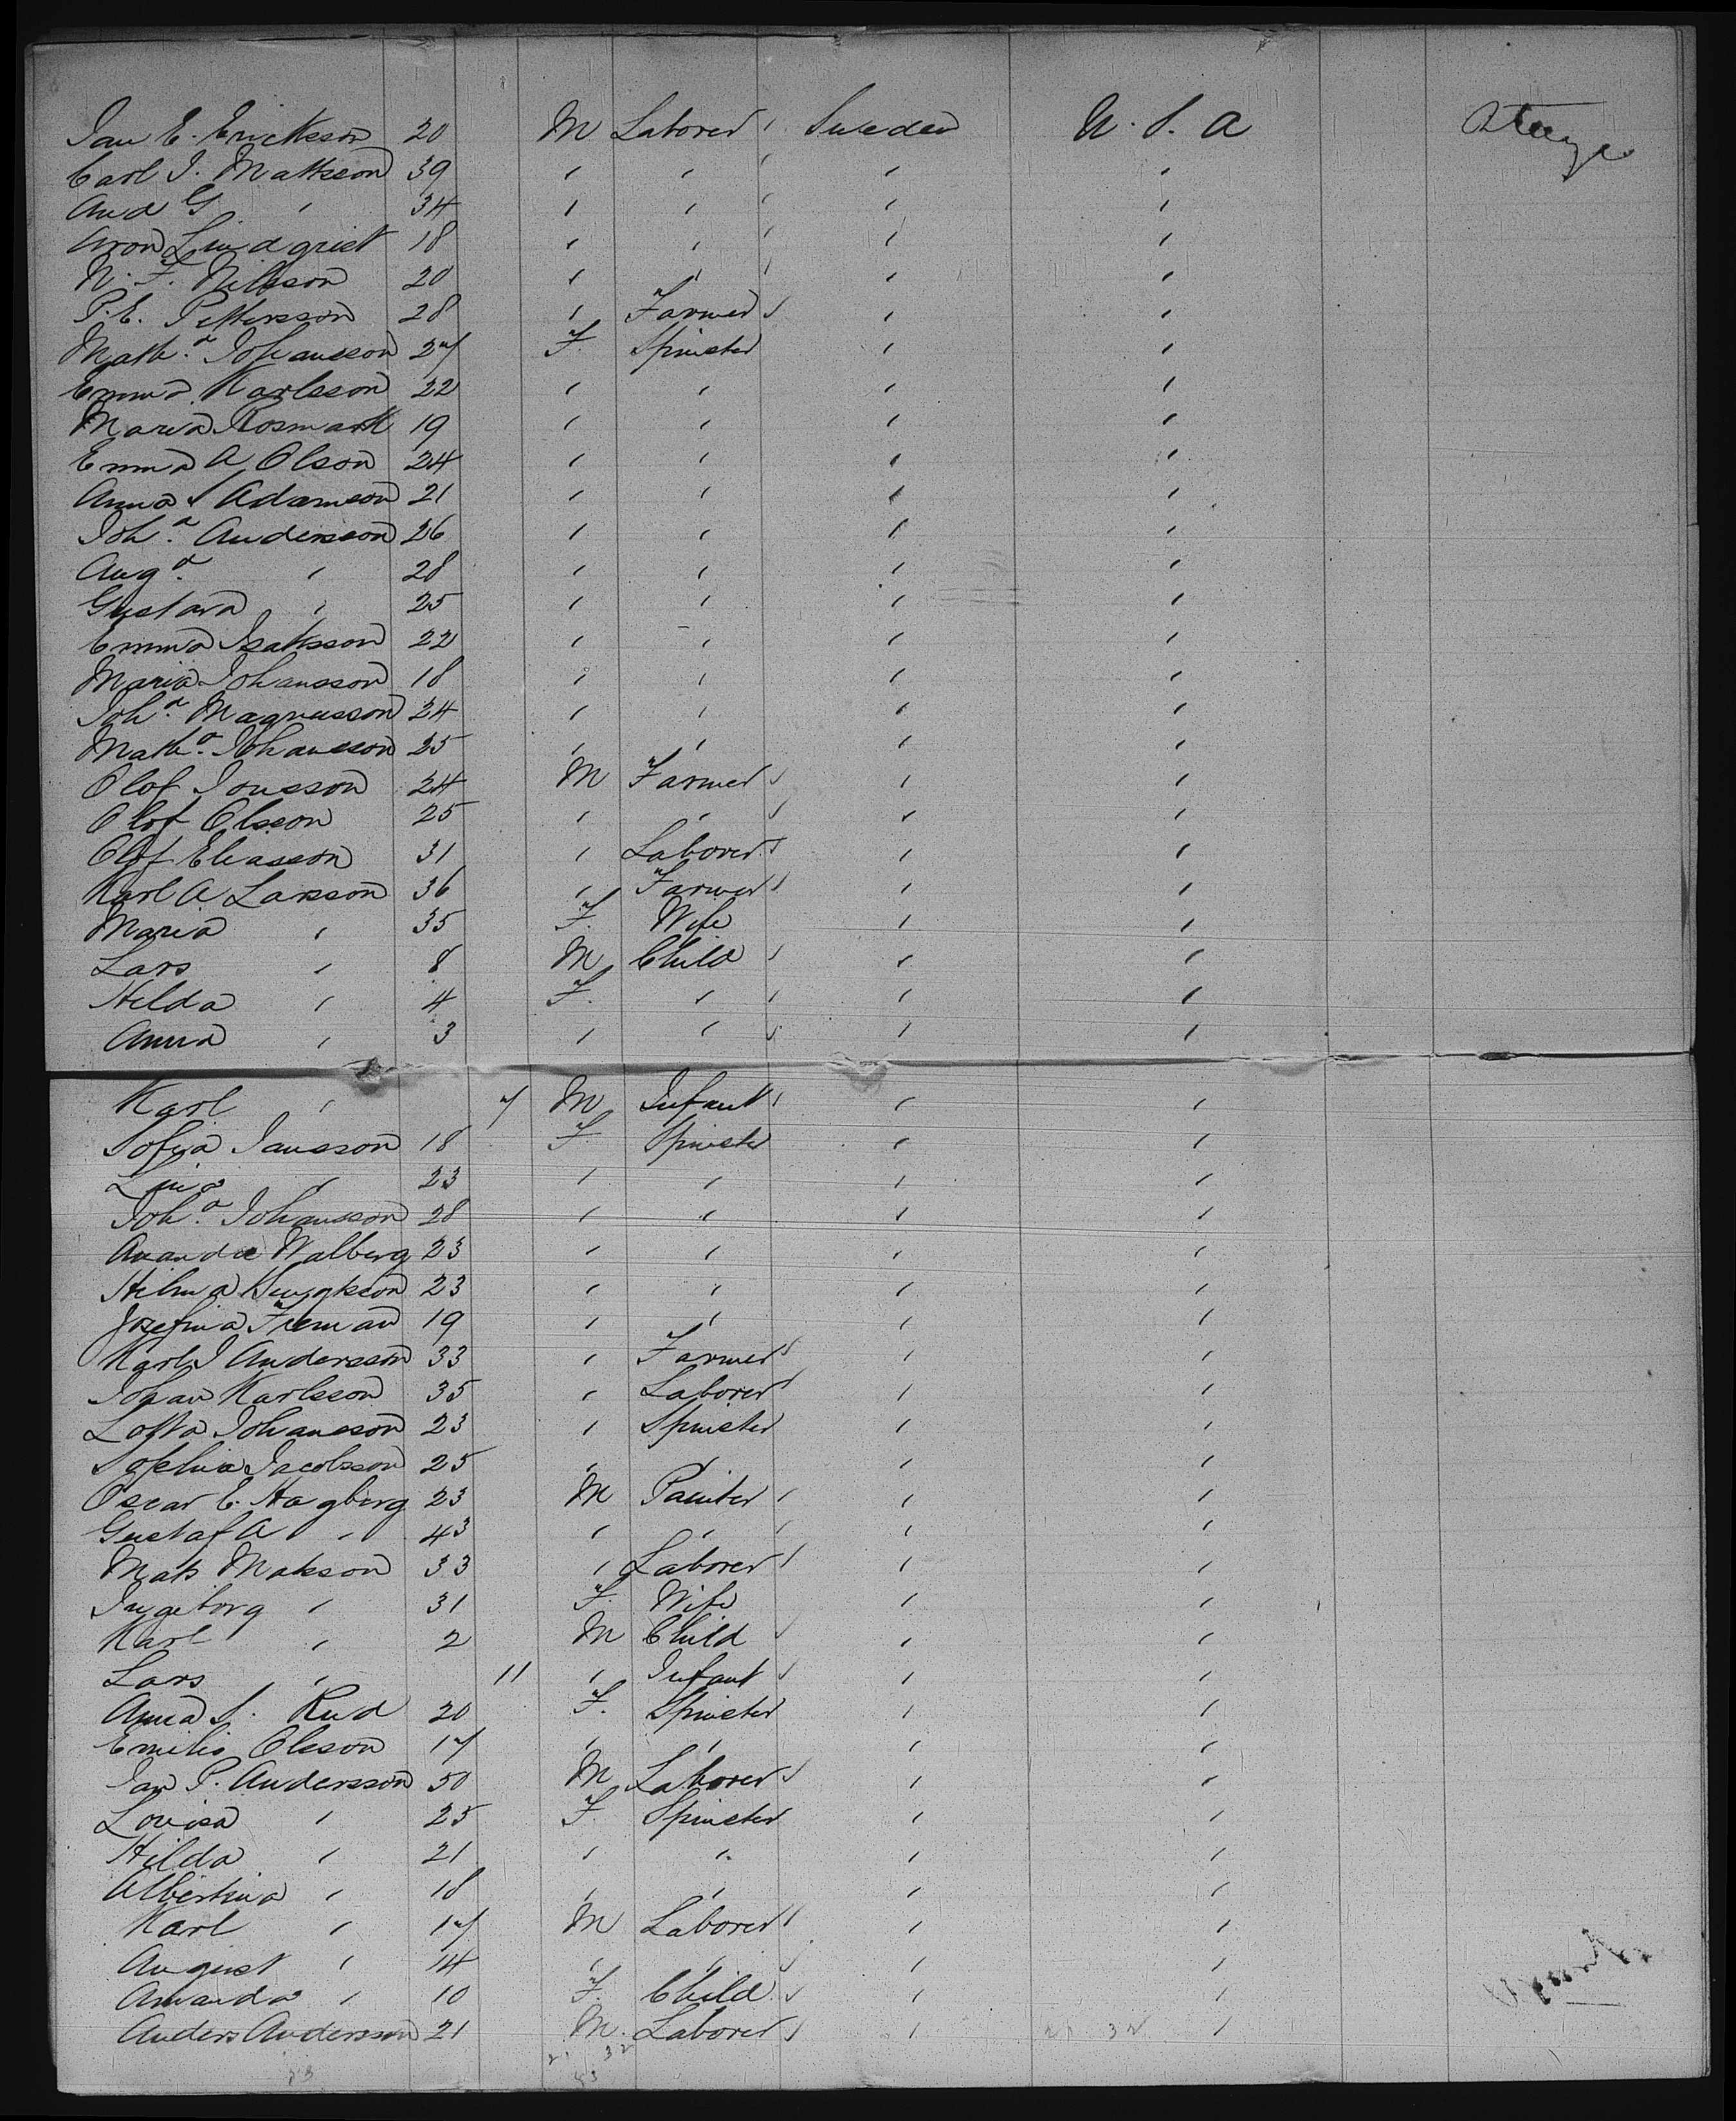 Jan E. Ericksson 20 M Laborer ′ Sweden U. S. A Steege
Carl J. Mattsson 39 ′ ′ ′ ′ ′
And G ′ 34 ′ ′ ′ ′ ′
Aron Lindqrist 18 ′ ′ ′ ′ ′
N. F. Nilsson 20 ′ ′ ′ ′ ′
P. E. Pettersson 28 ′ Farmer ′ ′ ′
Math.a Johansson 27 F. Spinster ′ ′
Emma Karlsson 22 ′ ′ ′ ′
Maria Rosmark 19 ′ ′ ′ ′
Emma A Olson 24 ′ ′ ′ ′
Anna S Adamson 21 ′ ′ ′ ′
Joh.a Andersson 26 ′ ′ ′ ′
Aug.a ′ 28 ′ ′ ′ ′
Gustava ′ 25 ′ ′ ′ ′
Emma Isaksson 22 ′ ′ ′ ′
Maria Johansson 18 ′ ′ ′ ′
Joh.a Magnusson 24 ′ ′ ′ ′
Math.a Johansson 25 ′ ′ ′ ′
Olof Jonsson 24 M Farmer ′ ′ ′
Olof Olsson 25 ′ ′ ′ ′ ′
Olof Eliasson 31 ′ Laborer ′ ′ ′
Karl A Larsson 36 ′ Farmer ′ ′ ′
Maria ′ 35 F. Wife ′ ′
Lars ′ 8 M Child ′ ′ ′
Hilda ′ 4 F. ′ ′ ′ ′
Anna ′ 3 ′ ′ ′ ′ ′
Karl ′ 7 M Infant ′ ′ ′
Sofia Jansson 18 F Spinster ′ ′
Lina ′ 23 ′ ′ ′ ′
Joh.a Johansson 28 ′ ′ ′ ′
Walberg 23 ′ ′ ′ ′
Hilma 23 ′ ′ ′ ′
Josefina Freman 19 ′ ′ ′ ′
Karl J Andersson 33 ′ Farmer ′ ′ ′
Johan Karlsson 35 ′ Laborer ′ ′ ′
Lotta Johansson 23 ′ Spinster ′ ′
Sophia Jacobsson 25 ′ ′ ′ ′
Oscar E. Hagberg 23 M Painter ′ ′ ′
Gustaf A ′ 43 ′ ′ ′ ′ ′
Mats Matsson 33 ′ Laborer ′ ′ ′
Ingeborg ′ 31 F. Wife ′ ′
Karl ′ 2 M Child ′ ′ ′
Lars ′ 11 ′ Infant ′ ′ ′
Anna S. Rud 20 F. Spinster ′ ′
Emilie Olsson 17 ′ ′ ′ ′
Jan P. Andersson 50 M Laborer ′ ′ ′
Louisa ′ 25 F Spinster ′ ′
Hilda ′ 21 ′ ′ ′ ′
Albertina ′ 18 ′ ′ ′ ′
Karl ′ 17 M Laborer ′ ′ ′
August ′ 14 ′ ′ ′ ′ ′
Amanda ′ 10 F. Child ′ ′ ′
Anders Andersson 21 M. Laborer ′ ′ 21 32 ′
21 32
53 53